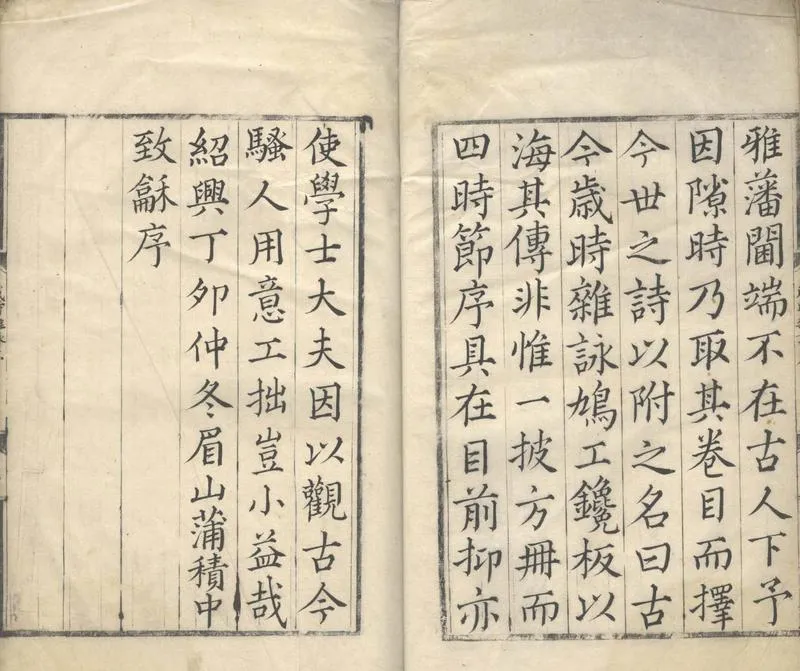 雅藩閫端不在古人下予
因隙時乃取其卷目而擇
今世之詩以附之名曰古
今歲時雜詠鳩工鑱板以
海其傳非惟一披方冊而
四時節序具在目前抑亦
使學士大夫因以觀古今
騷人用意工拙豈小益哉
紹興丁夘仲冬眉山蒲積中
致龢序